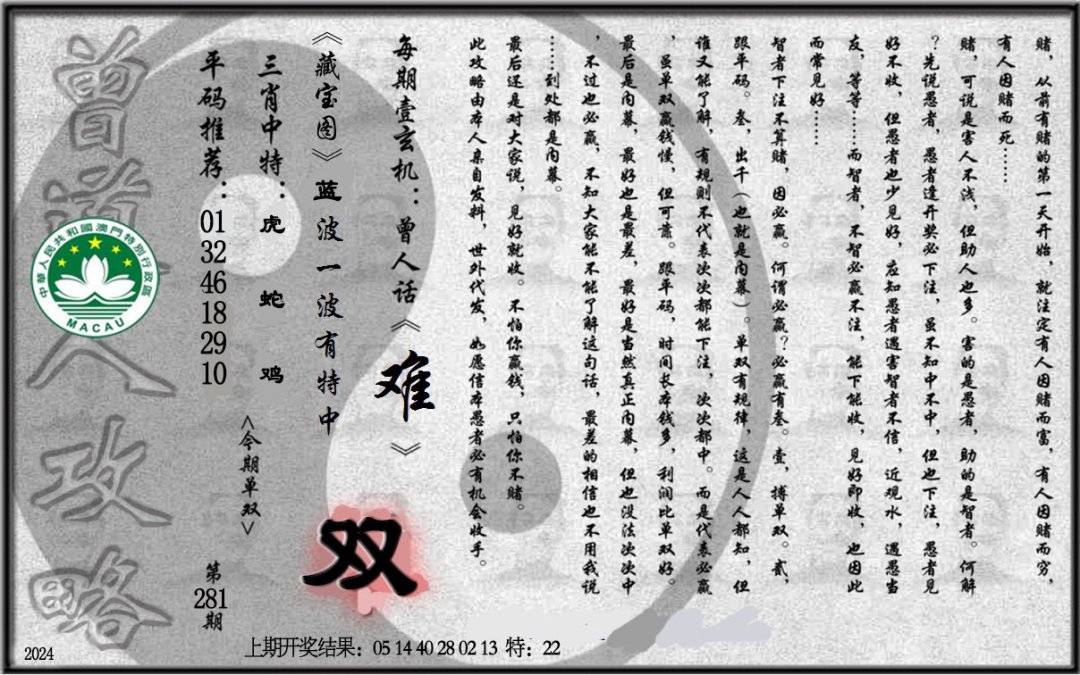 赌，从前有赌的第一天开始，就注定有人因赌而富，有人因赌而穷，
有人因赌而死……
赌，可说是害人不浅，但助人也多。害的是愚者，助的是智者。何解
？先说愚者，愚者逢开奖必下注，虽不知中不中，但也下注，愚者见
好不收，但愚者也少见好，应知愚者遇害智者不信，近观水，遇愚当
友，等等……而智者，不智必赢不注，能下能收，见好即收，也因此
而常见好……
智者下注不算赌，因必赢。何谓必赢？必赢有叁。壹，搏单双。贰，
跟平码。叁，出千（也就是内幕）。单双有规律，这是人人都知，但
谁又能了解，有规则不代表次次都能下注，次次都中。而是代表必赢
，虽单双赢钱慢，但可靠。跟平码，时间长本钱多，利润比单双好。
最后是内幕，最好也是最差，最好是当然真正内幕，但也没法次次中
，不过也必赢，不知大家能不能了解这句话，最差的相信也不用我说
……到处都是内幕。
最后还是对大家说，见好就收。不怕你赢钱，只怕你不赌。
此攻略由本人亲自发料，世外代发，如愿信本愚者必有机会收手。
每期壹玄机：曾人话《难》
《藏宝图》蓝波一波有特中
三肖中特：虎 蛇 鸡
平码推荐：01 32 46 18 29 10
<今期单双>
双
第281期
曾道人攻略
中華人民共和國澳門特別行政區
MACAU
2024
上期开奖结果：05 14 40 28 02 13 特：22